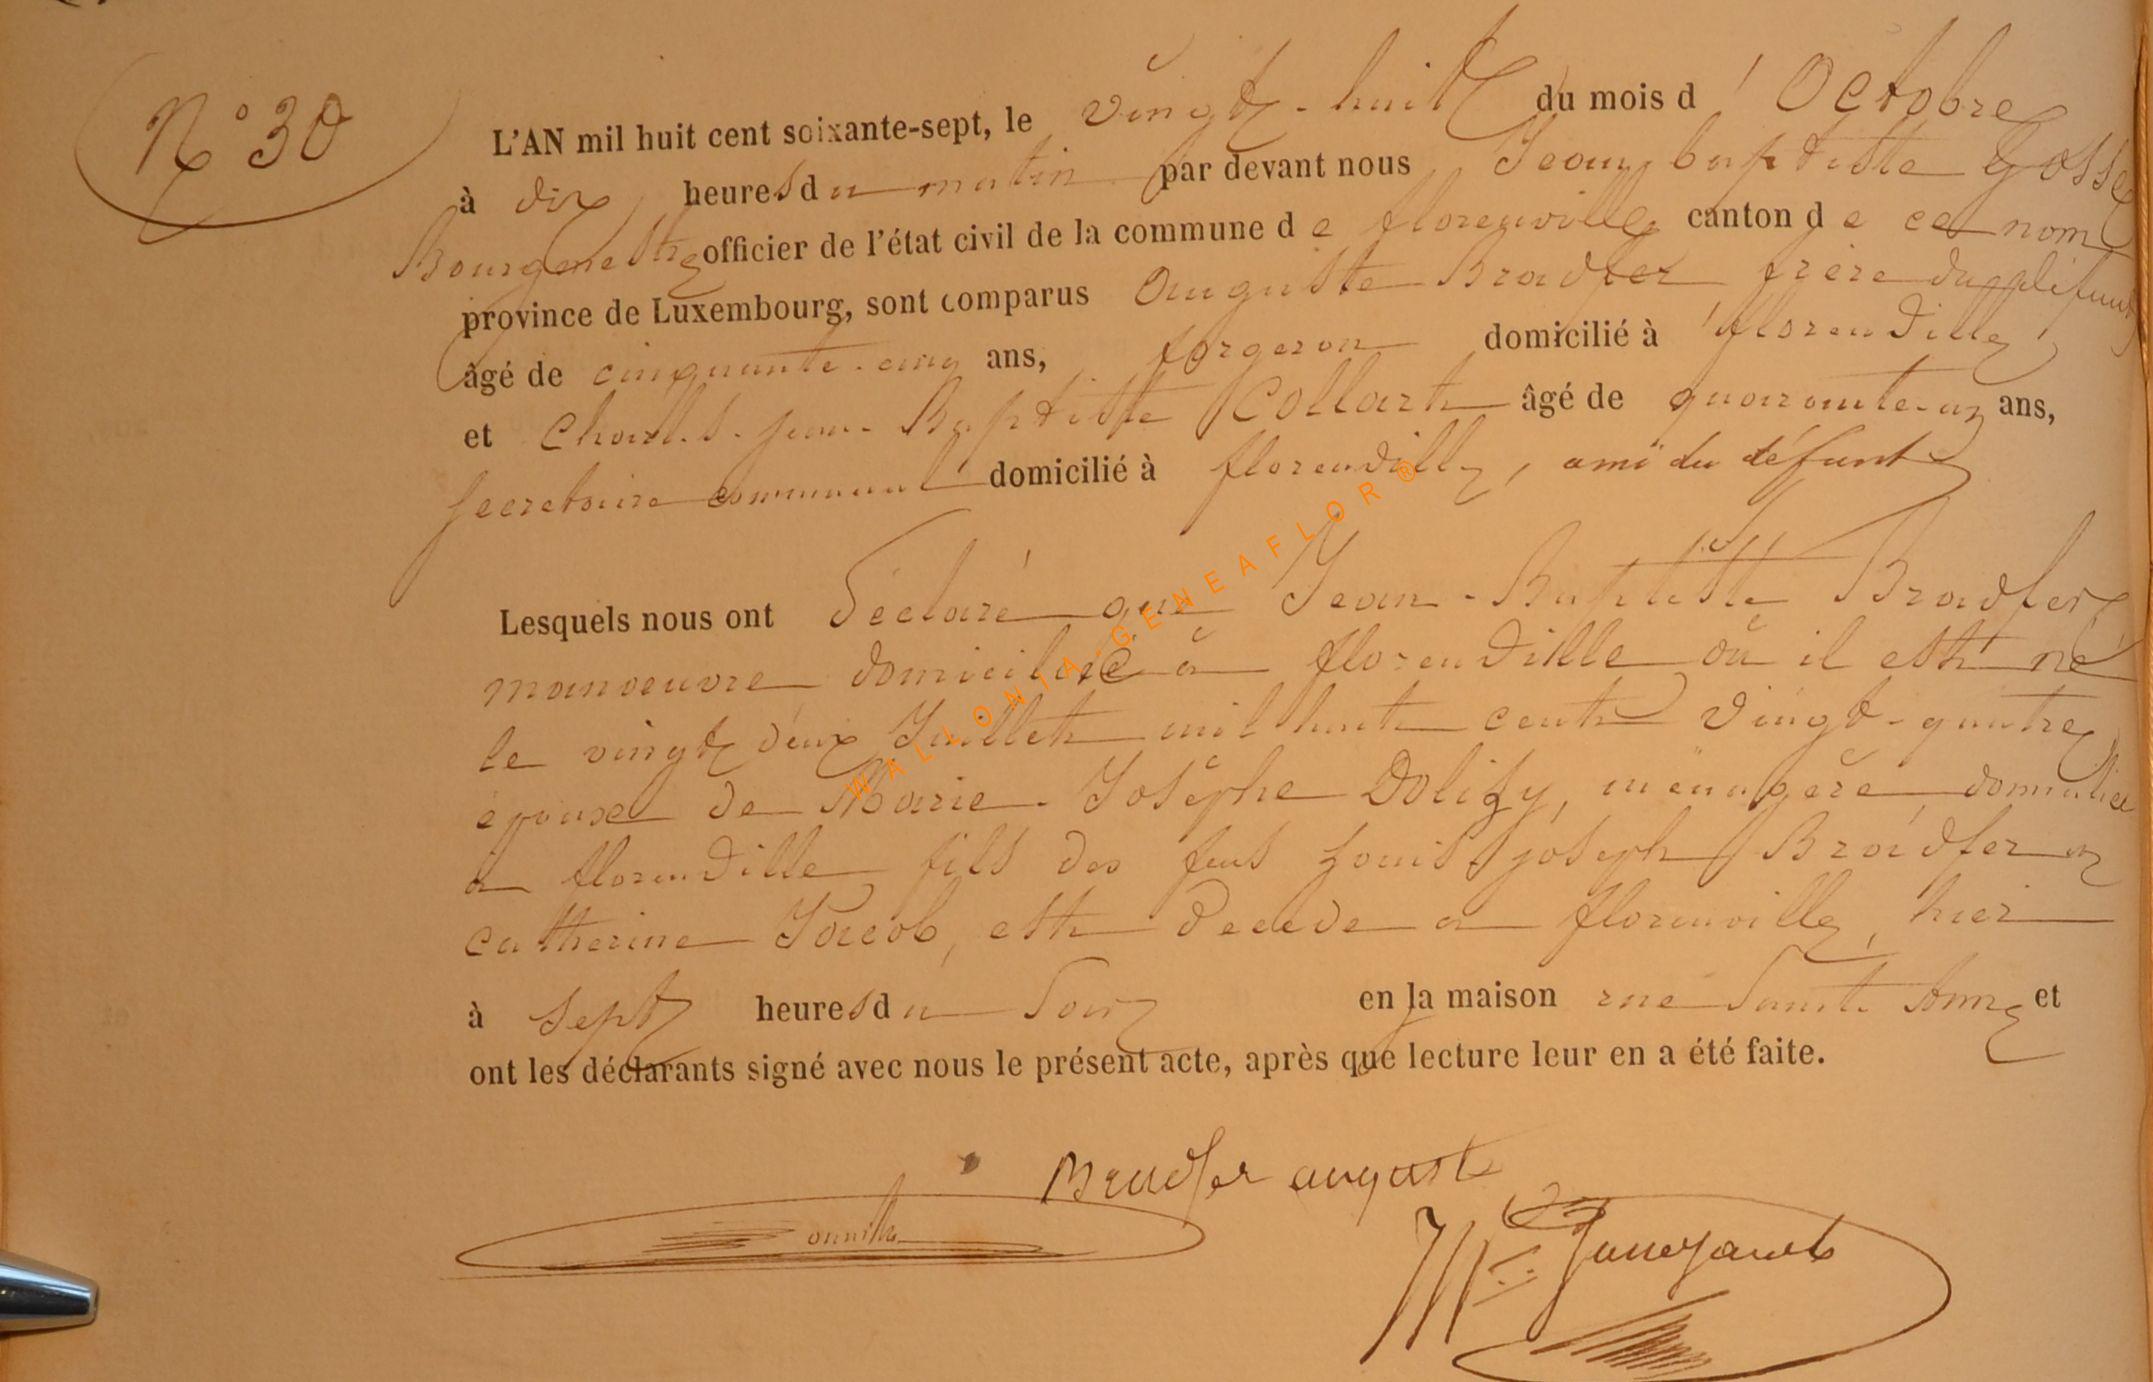 N° 30
L'AN mil huit cent soixante-sept, le vingt-huit du mois d'Octobre
à dix heures du matin par devant nous Jean baptiste Gosse
Bourgmestre officier de l'état civil de la commune de florenville canton de ce nom
province de Luxembourg, sont comparus Auguste Bradfer frère du défunt
âgé de cinquante-cinq ans, forgeron domicilié à florenville,
et Charles-jean-Baptiste Collart âgé de quarante-un ans,
secretaire communal domicilié à florenville, ami du défunt
Lesquels nous ont déclaré que Jean-Baptiste Bradfer
manoeuvre domicilié à florenville où il est né
le vingt deux Juillet mil huit cent vingt-quatre
époux de Marie-Josèphe Dolizy, ménagère domiciliée
à florenville fils des feus Louis joseph Bradfer et
catherine Jacob, est décédé à florenville, hier
à sept heures du soir en la maison rue Sainte Anne et
ont les déclarants signé avec nous le présent acte, après que lecture leur en a été faite.
Bradfer auguste
WALLONIA-GENEAFLOR®